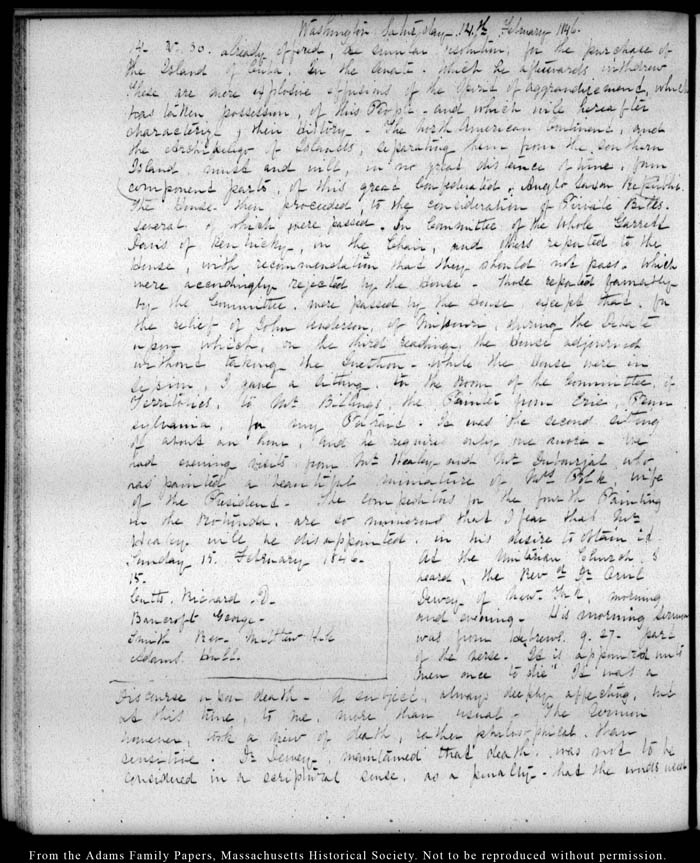 Washington Saturday 14th February 1846.
14. IV. 30. already offered, a similar resolution, for the purchase of
the Island of Cuba, in the Senate. which he afterwards withdrew
These are mere explosive effusions of the Spirit of aggrandizement, which
has taken possession, of this People - and which will hereafter
characterize, their history - The North American Continent, and
the Archipelago of Islands, separating them from the southern
Island must and will, in no great distance of time, form
component parts, of this great Confederated, Anglo Saxon Republic.
The House then proceeded, to the consideration of Private Bills.
several of which were passed. In Committee of the Whole Garrett
Davis of Kentucky, in the Chair, and others reported to the
House, with recommendation that they should not pass. which
were accordingly rejected by the House - Those reported favourably
by the Committee, were passed by the House except that, for
the relief of John Anderson, of Missouri, during the Debate
upon which, on the third reading, the House adjourned
without taking the Question - While the House were in
session, I gave a sitting, in the Room of the Committee, of
Territories, to Mr Billings, the Painter from Erie, Penn
sylvania, for my Portrait. It was the second sitting
of about an hour, and he requires only one more - We
had evening visits from Mr Healy and Mr Dubourjal, who
has painted a beautiful miniature of Mrs Polk, wife
of the President - The competitors for the fourth Painting
in the Rotunda, are so numerous that I fear that Mr
Healy will be disappointed, in his desire to obtain it.
Sunday 15. February 1846.
15.
Cutts. Richard D.
Bancroft George -
Smith Rev. Matthew Hale
Adams. Hull.
At the Unitarian Church, I
heard, the Revd Dr Orvil
Dewey of New-York, morning
and evening - His morning Sermon
was from Hebrews. 9. 27. part
of the verse. "It is appointed unto
men once to die" It was a
Discourse upon death - A subject, always deeply affecting, but
at this time, to me, more than usual - The Sermon
however, took a view of death, rather philosophical, than
sensitive. Dr Dewey, maintained that death, was not to be
considered in a scriptural sense, as a penalty - had the words used
From the Adams Family Papers, Massachusetts Historical Society. Not to be reproduced without permission.